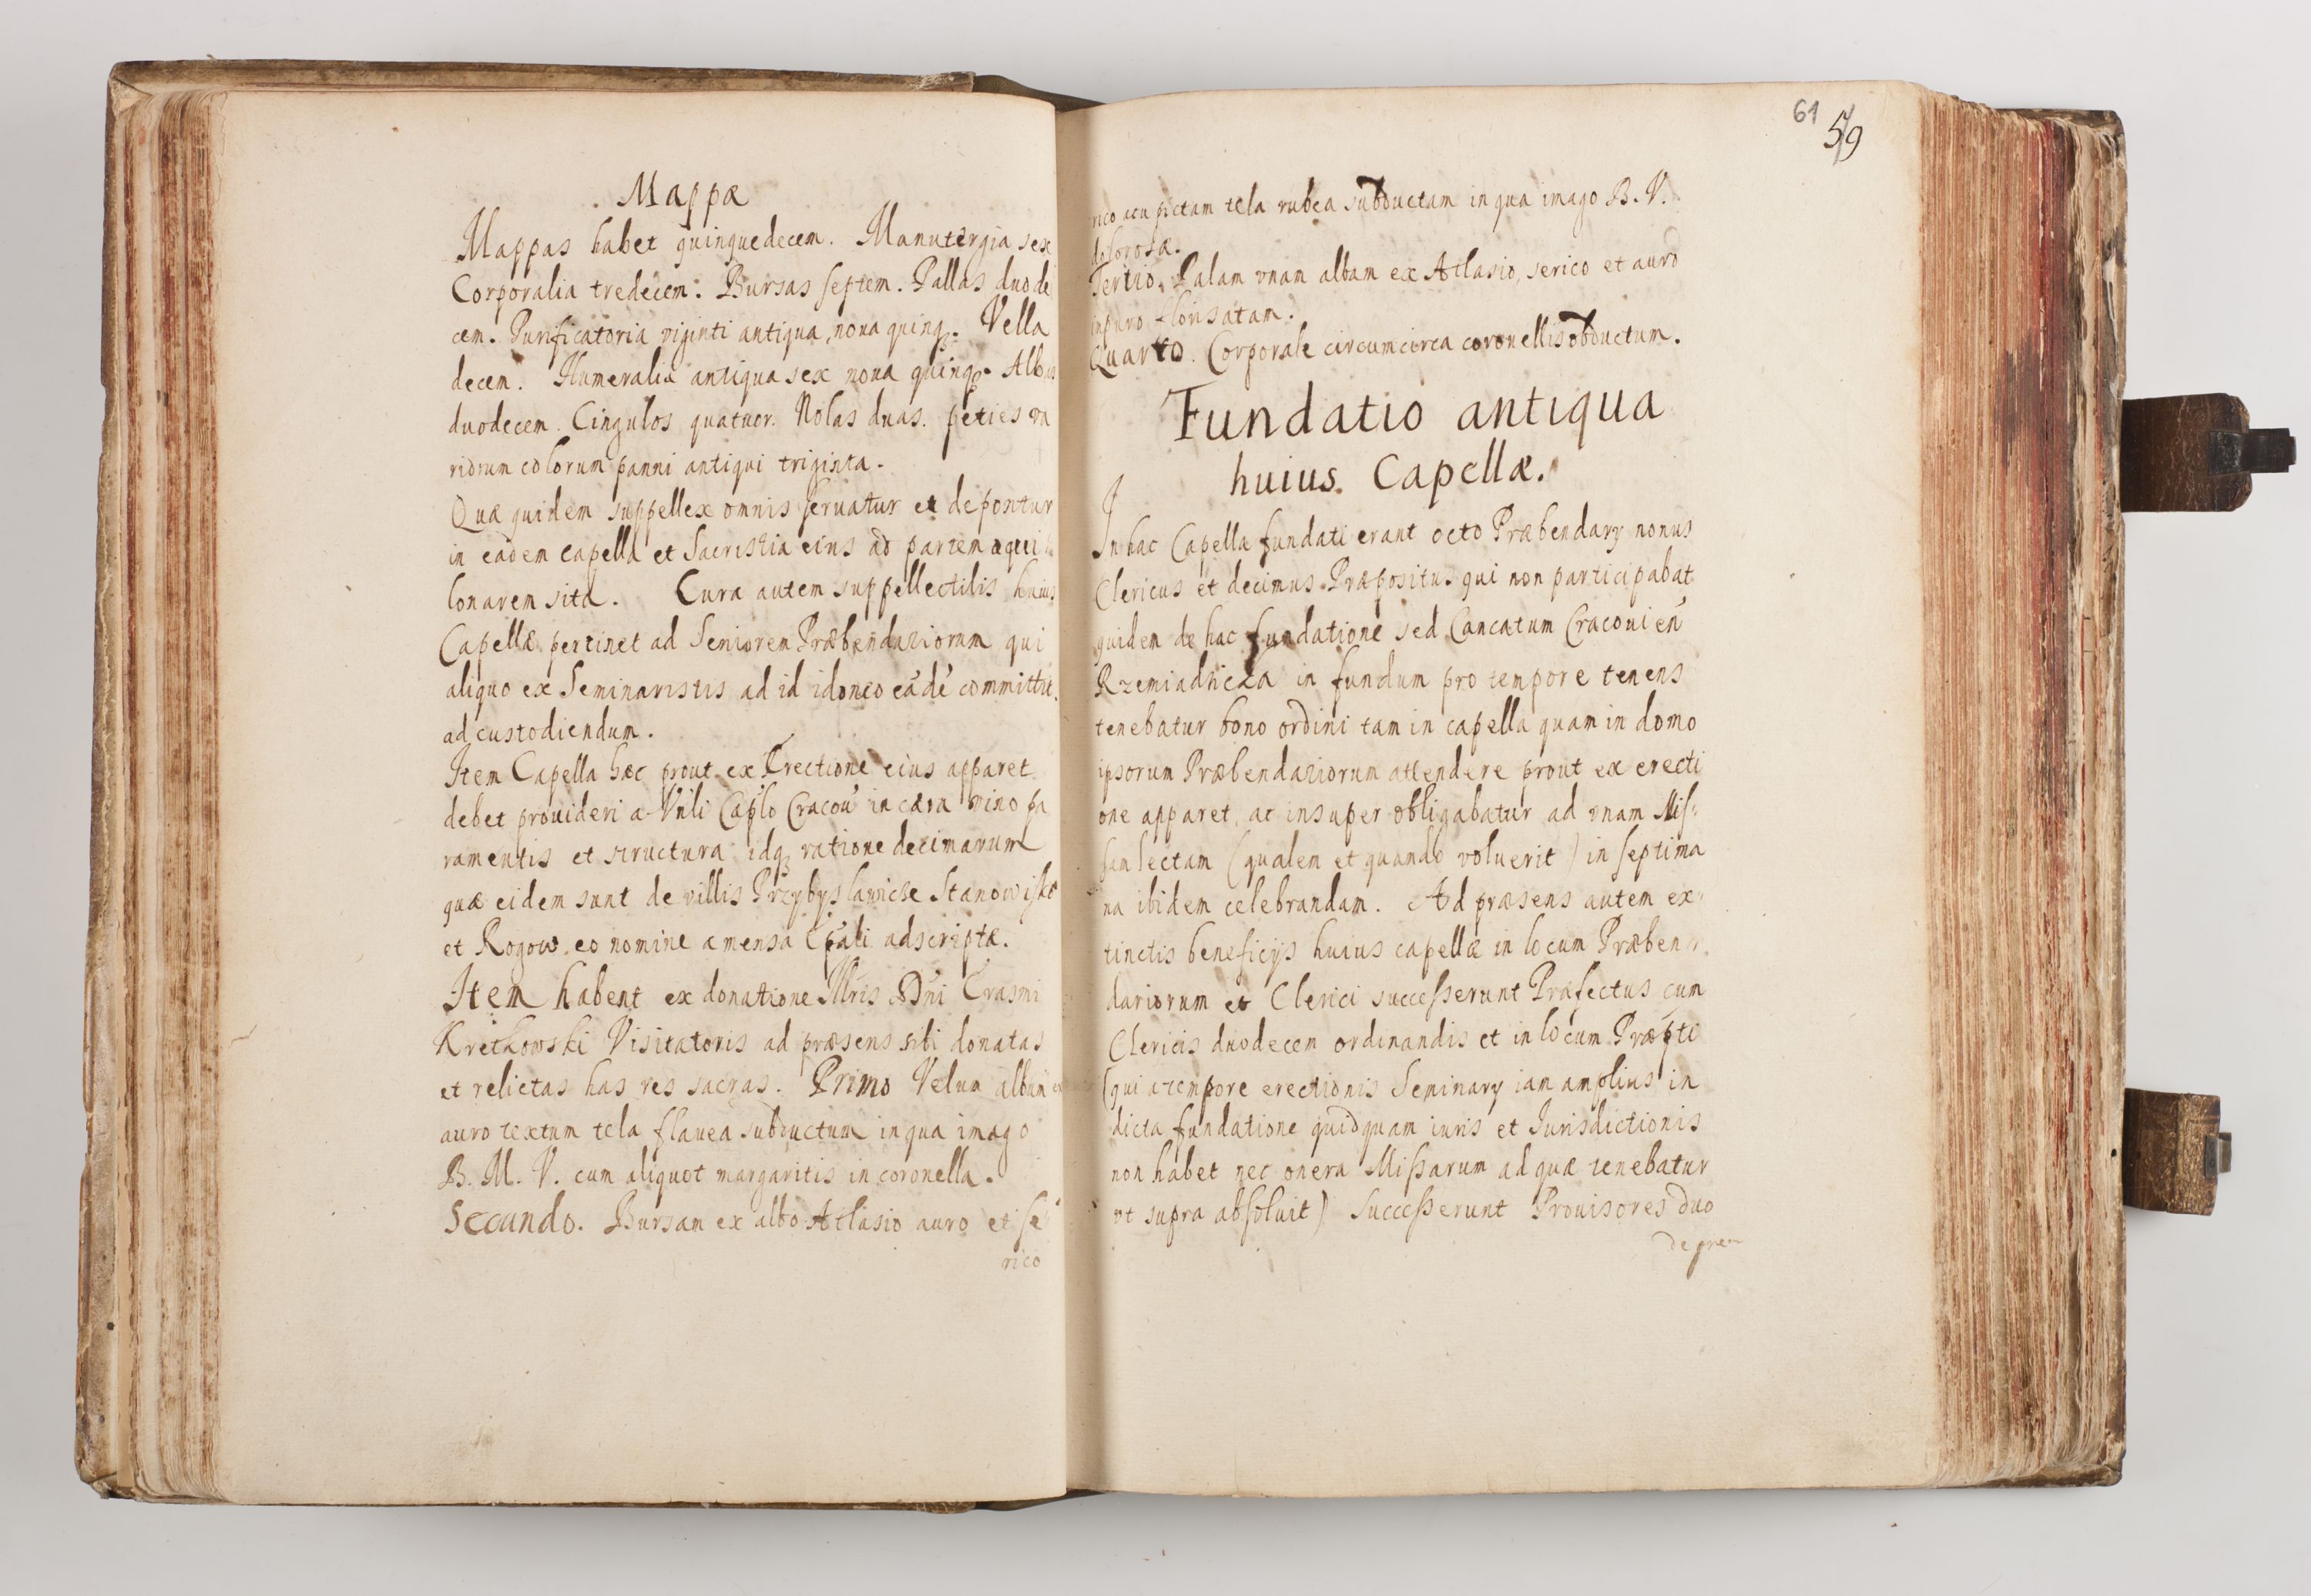 Mappæ
Mappas habet quinquedecem. Manutergia sex
Corporalia tredecem. Bursas septem. Pallas duode
cem. Purificatoria viginti antiqua, noua quinq3. Vella
decem. Humeralia antiqua sex noua quinq3. Albas
duodecem. Cingulos quatuor. Nolas duas. peties va
riorum colorum panni antiqui triginta.
Quæ quidem suppellex omnis seruatur et deponitur
in eadem capella et Sacristia eius ad partem aqui
lonarem sita. Cura autem suppellectilis huius
Capellæ pertinet ad Seniorem Præbendariorum qui
aliquo ex Seminaristis ad id idoneo eādē committit
ad custodiendum.
Item Capella hæc prout ex Erectione eius apparet
debet prouideri a Vnli Caplo Cracou in cæra vino pa
ramentis et structura idq3 ratione decimarum
quæ eidem sunt de villis Przybysławicze Stanowisko
et Rogow eo nomine a mensa Epali adscriptæ.
Item habent ex donatione Illris Dni Erasmi
Kretkowski Visitatoris ad præsens sibi donatas
et relictas has res sacras. Primo Velum album ex
auro textum tela flauea subductum in qua imago
B. M. V. cum aliquot margaritis in coronella.
Secundo. Bursam ex albo Atlasio auro et se
rico
61
59
rico acu pictam tela rubea subductam in qua imago B. V.
dolorosæ.
Tertio. Palam vnam albam ex Atlasio, serico et auro
in puro florisatam.
Quarto. Corporale circumcirca coronellis obductum.
Fundatio antiqua
huius Capellæ.
In hac Capella fundati erant octo Præbendary nonus
Clericus et decimus Præpositus qui non participabat
quidem de hac fundatione sed Cancatum Cracouien
Rzemiadnicza in fundum pro tempore tenens
tenebatur bono ordini tam in capella quam in domo
ipsorum Præbendariorum attendere prout ex erecti
one apparet, at insuper obligabatur ad vnam Mis:
sam lectam (qualem et quando voluerit) in septima
na ibidem celebrandam. Ad præsens autem ex
tinctis beneficijs huius capellæ in locum Præben
dariorum et Clerici successerunt Præfectus cum
Clericis duodecem ordinandis et in locum Præpti
(qui a tempore erectionis Seminary iam amplius in
dicta fundatione quidquam iuris et Iurisdictionis
non habet nec onera Missarum ad quæ tenebatur
vt supra absoluit) Successerunt Prouisores duo
de grem